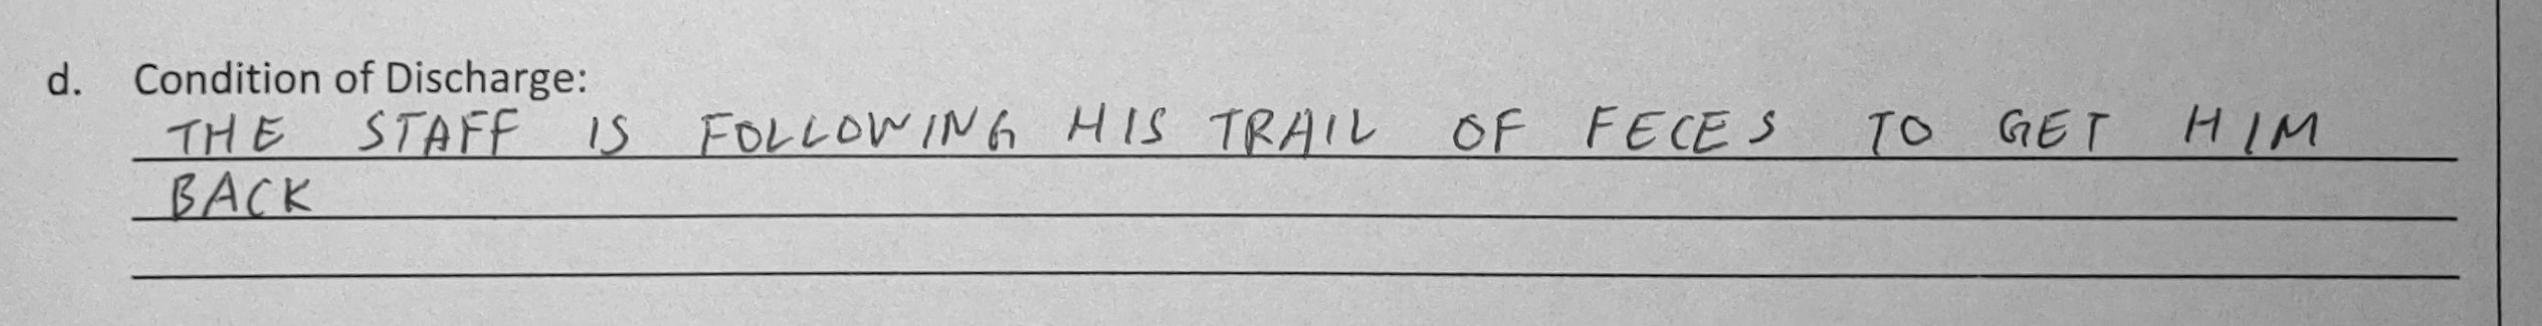 d. Condition of Discharge:
THE STAFF IS FOLLOWING HIS TRAIL OF FECES TO GET HIM
BACK